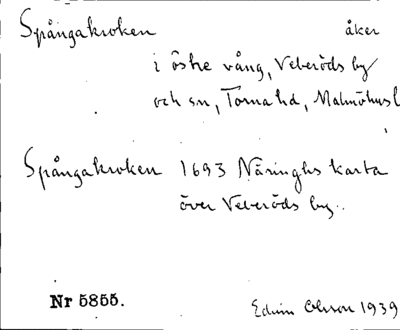 Spångakroken åker
i östre vång, Veberöds by
och sn, Torna hd, Malmöhus l
Spångakroken 1693 Näringhs karta
över Veberöds by.
Nr 5855.
Edvin Olsson 1939